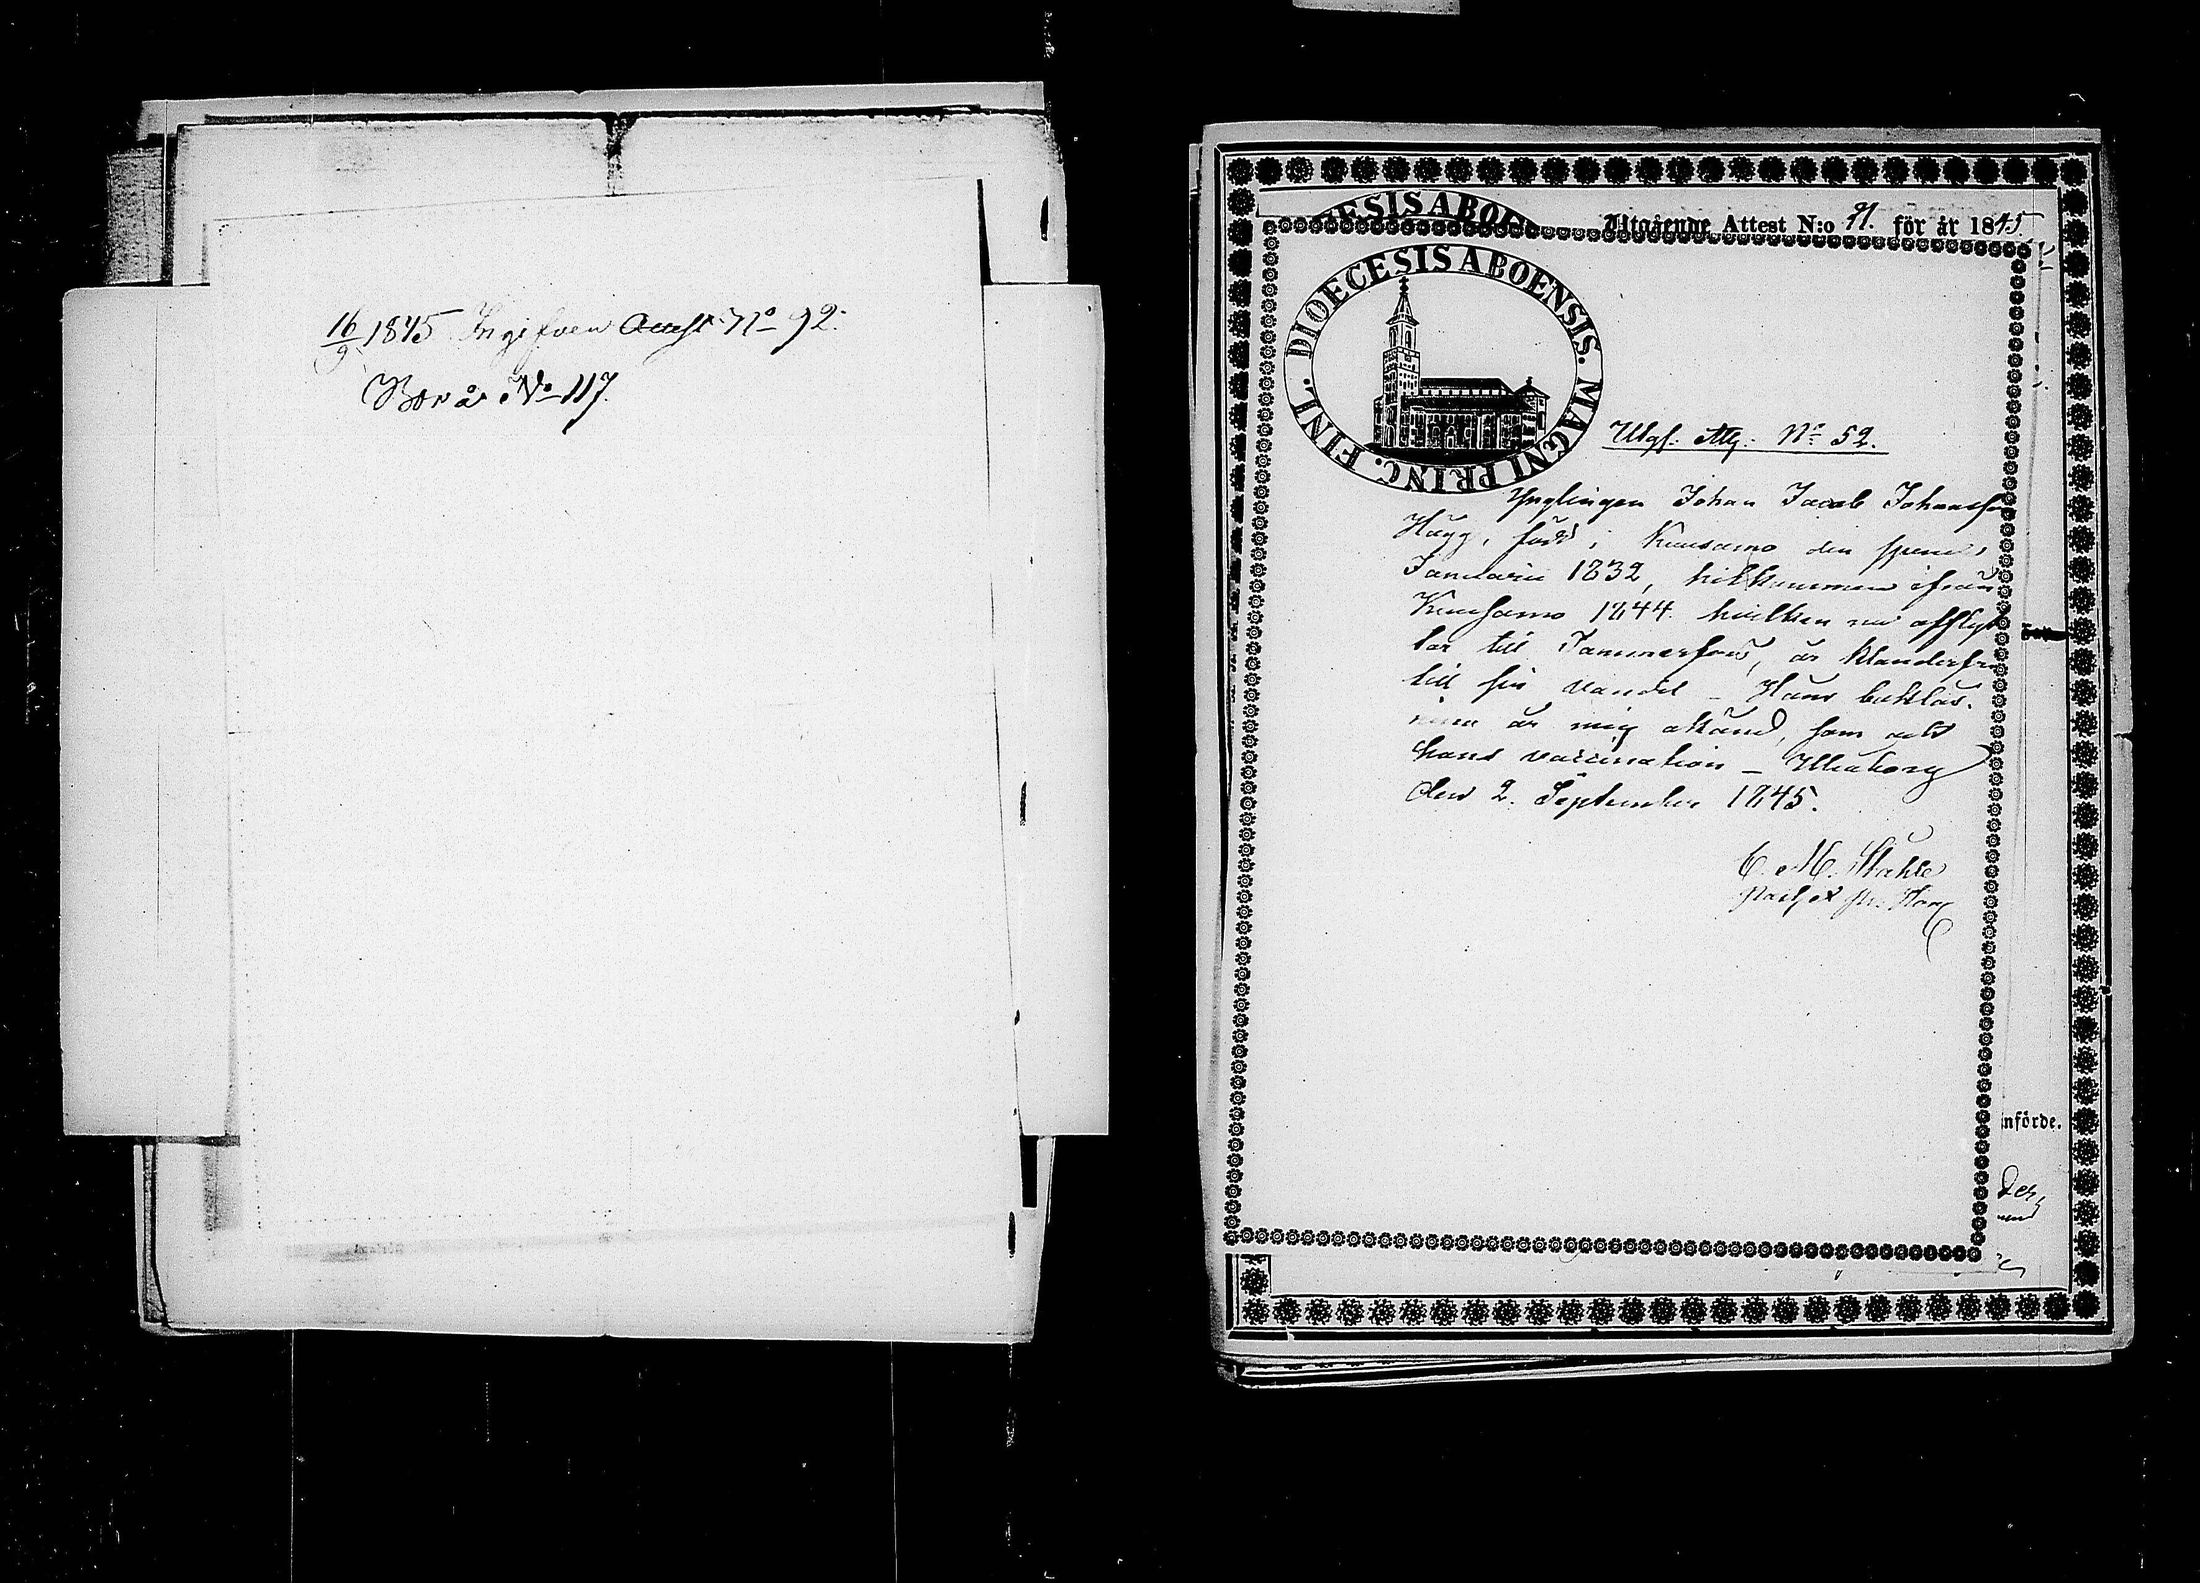 16/9 1845 Ingifven Attest No 92.
Bor å No 117.
ESIS ABOE
Utgående Attest N:o 91. för år 1845.
DIOECESIS ABOENSIS. MAGNI PRINC. FINL.
Utgf. Att. No 52.
Ynglingen Johan Jacob Johansson
Hagg, född i Kuusamo den
Januarii 1832, hitkommen ifrån
Kuusamo 1844. hvilken nu afflyt
tar till Tammerfors, är klanderfri
till sin vandel – Hans
är mig okänd, som ock
hans vaccination – Uleåborg
den 2. September 1845.
C. M. Ståhle
nförde.